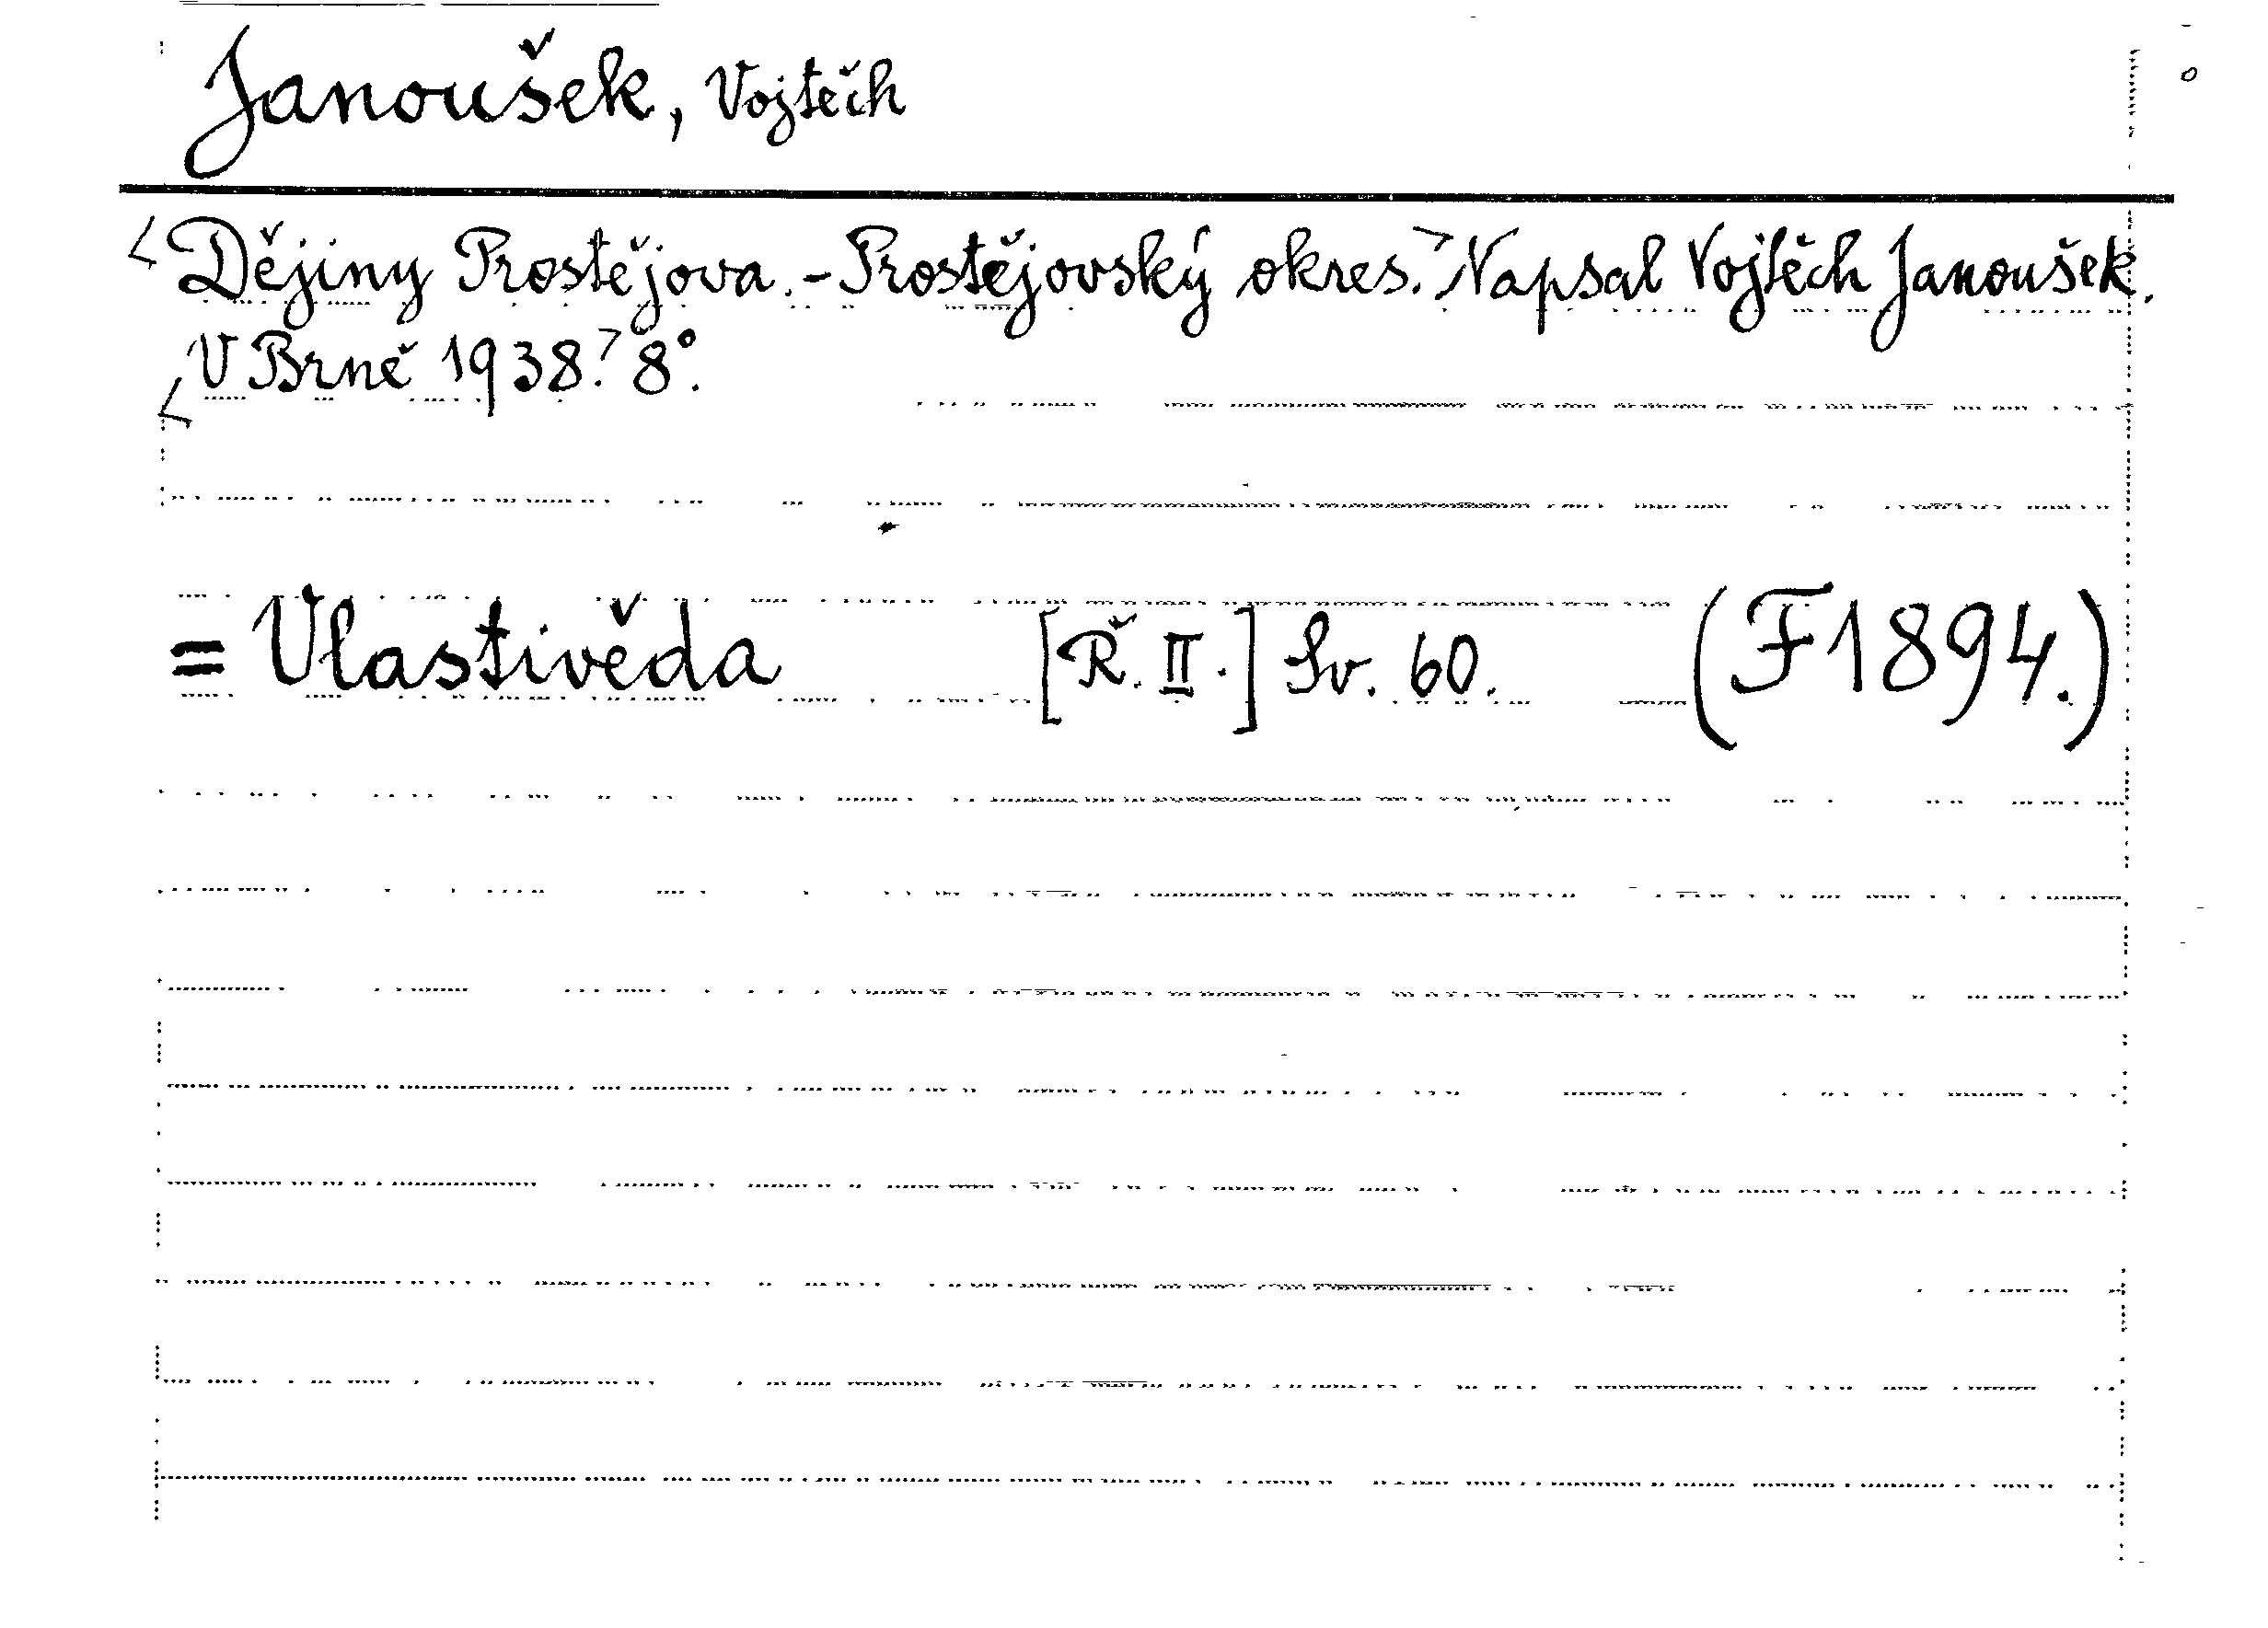 Janoušek, Vojtěch
<Dějiny Prostějova. - Prostějovský okres.> Napsal Vojtěch Janoušek.
<V Brně 1938.> 8°.
= Vlastivěda [Ř. II.] Sv. 60. (F1894.)